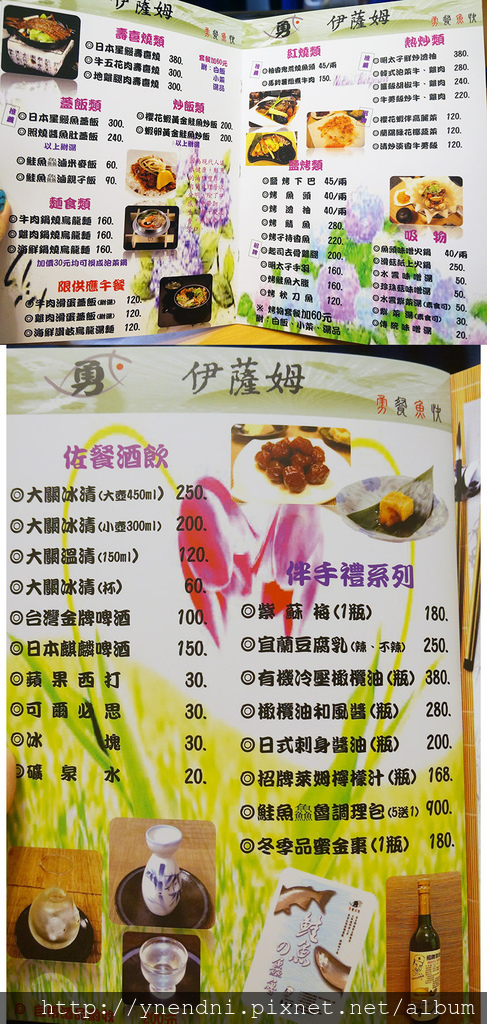 勇 伊薩姆
勇餐魚快
壽喜燒類
◎日本星鰻壽喜燒 380.
◎牛五花肉壽喜燒 300.
◎地雞腿肉壽喜燒 300.
套餐加60元
附:白飯
小菜
湯品
蓋飯類
◎日本星鰻蓋飯 300.
◎照燒醬魚肚蓋飯 240.
以上附湯
◎鮭魚鱻滷米麥飯 60.
◎鮭魚鱻滷親子飯 90.
炒飯類
◎櫻花蝦黃金鮭魚炒飯
◎蝦卵黃金鮭魚炒飯 200.
以上附湯
麵食類
◎牛肉鍋燒烏龍麵 160.
◎雞肉鍋燒烏龍麵 160.
◎海鮮鍋燒烏龍麵 160.
加價30元均可換成泡菜鍋
限供應午餐
牛肉滑蛋蓋飯(附湯) 120.
◎雞肉滑蛋蓋飯(附湯) 120.
◎海鮮讚岐烏龍湯麵 120.
勇 伊薩姆
勇餐魚快
紅燒類
45/兩
150.
鹽烤類
◎鹽烤下巴 45/兩
◎烤魚頭 40/兩
◎烤油魚 40/兩
◎烤鯖魚
◎烤子持香魚 220.
◎起司去骨雞腿 200.
◎明太子牛羽 160.
◎烤鮭魚大腹 160.
◎烤秋刀魚 120.
※ 烤物套餐加60元
附:白飯、小菜、湯品
熱炒類
380.
◎韓式泡菜牛、雞肉 280.
240.
◎牛蒡飯炒牛、雞肉 220.
◎櫻花蝦伴高麗菜 120.
120.
120.
吸物
◎魚頭味噌火鍋 40/兩
250.
◎水雲味噌湯 50.
◎珍珠菇味噌湯 50.
◎水雲紫菜湯(素食可) 50.
◎紫菜湯(素食可) 30.
◎傳統味噌湯 20.
勇 伊薩姆
勇餐魚快
佐餐酒飲
◎大關冰清(大壺450ml) 250.
◎大關冰清(小壺300ml) 200.
◎大關溫清(150ml) 120.
◎大關冰清(杯) 60.
◎台灣金牌啤酒 100.
◎日本麒麟啤酒 150.
◎蘋果西打 30.
◎可爾必思 30.
◎冰塊 30.
◎礦泉水 20.
伴手禮系列
◎紫蘇梅(1瓶) 180.
◎宜蘭豆腐乳(辣、不辣) 250.
◎有機冷壓橄欖油(瓶) 380.
◎橄欖油和風醬(瓶) 280.
◎日式刺身醬油(瓶) 200.
◎招牌萊姆檸檬汁(瓶) 168.
◎鮭魚鱻魯調理包(5送1) 900.
◎冬季品蜜金棗(1瓶) 180.
鮭魚の
http://ynendni.pixnet.net/album